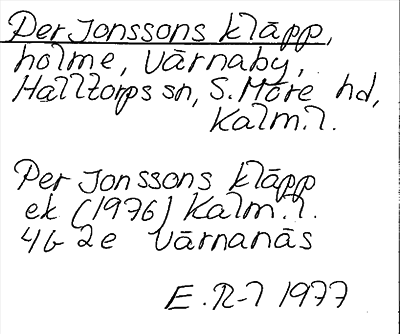 Per Jonssons kläpp,
holme, Värnaby,
Halltorps sn, S. Möre hd,
Kalm. l.
Per Jonssons kläpp
ek (1976) Kalm. l.
4G 2e Värnanäs
E. R-l 1977